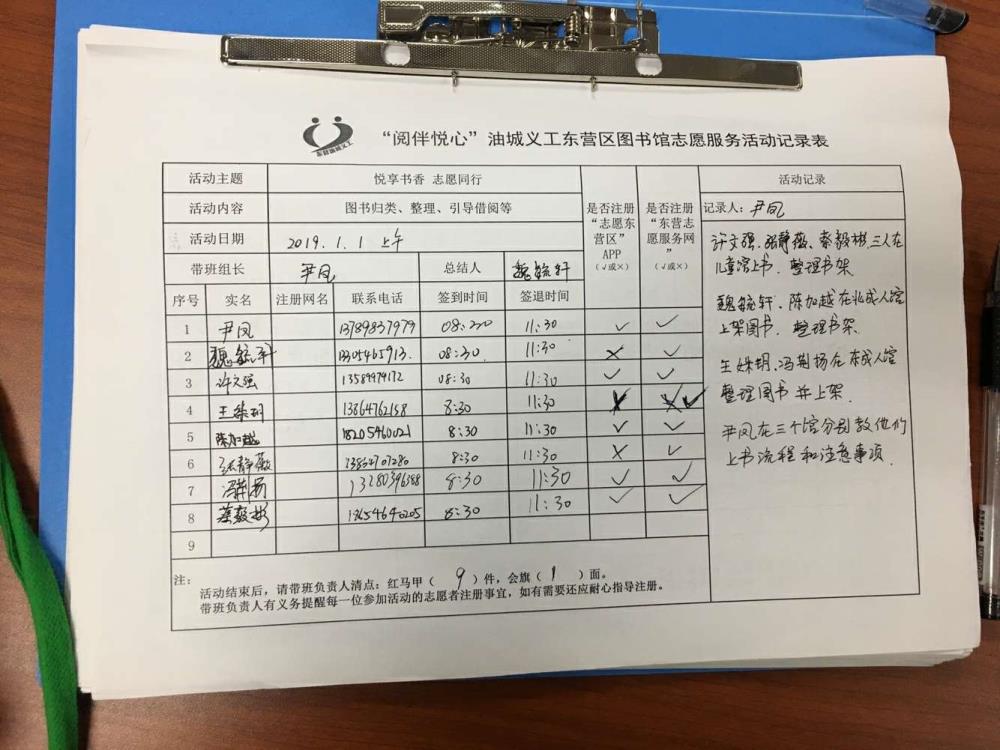 东营油城义工
“阅伴悦心”油城义工东营区图书馆志愿服务活动记录表
活动主题 悦享书香 志愿同行
活动内容 图书归类、整理、引导借阅等
活动日期 2019.1.1 上午
带班组长 尹凤 总结人 魏毓轩
是否注册“志愿东营区”APP（√或×）
是否注册“东营志愿服务网”（√或×）
序号 实名 注册网名 联系电话 签到时间 签退时间
1 尹凤 13789837979 11:30 ✓ ✓
2 魏毓轩 13305465913. 08:30. 11:30 × ✓
3 许文强 13589979172 08:30 11:30 ✓ ✓
4 8:30 11:30 ✓
5 陈加越 18205460021 8:30 11:30 ✓ ✓
6 张静薇 8:30 11:30 × ✓
7 8:30 11:30 ✓ ✓
8 18654640205 8:30 11:30 ✓ ✓
9
注：
活动结束后，请带班负责人清点：红马甲（ 9 ）件，会旗（ 1 ）面。
带班负责人有义务提醒每一位参加活动的志愿者注册事宜，如有需要还应耐心指导注册。
活动记录
记录人：尹凤
许文强、张静薇、秦毅彬三人在
儿童馆上书、整理书架.
魏毓轩、陈加越在北成人馆
上架图书、整理书架.
王姝玥、冯荆杨在东成人馆
整理图书并上架.
尹凤在三个馆分别教他们
上书流程和注意事项.